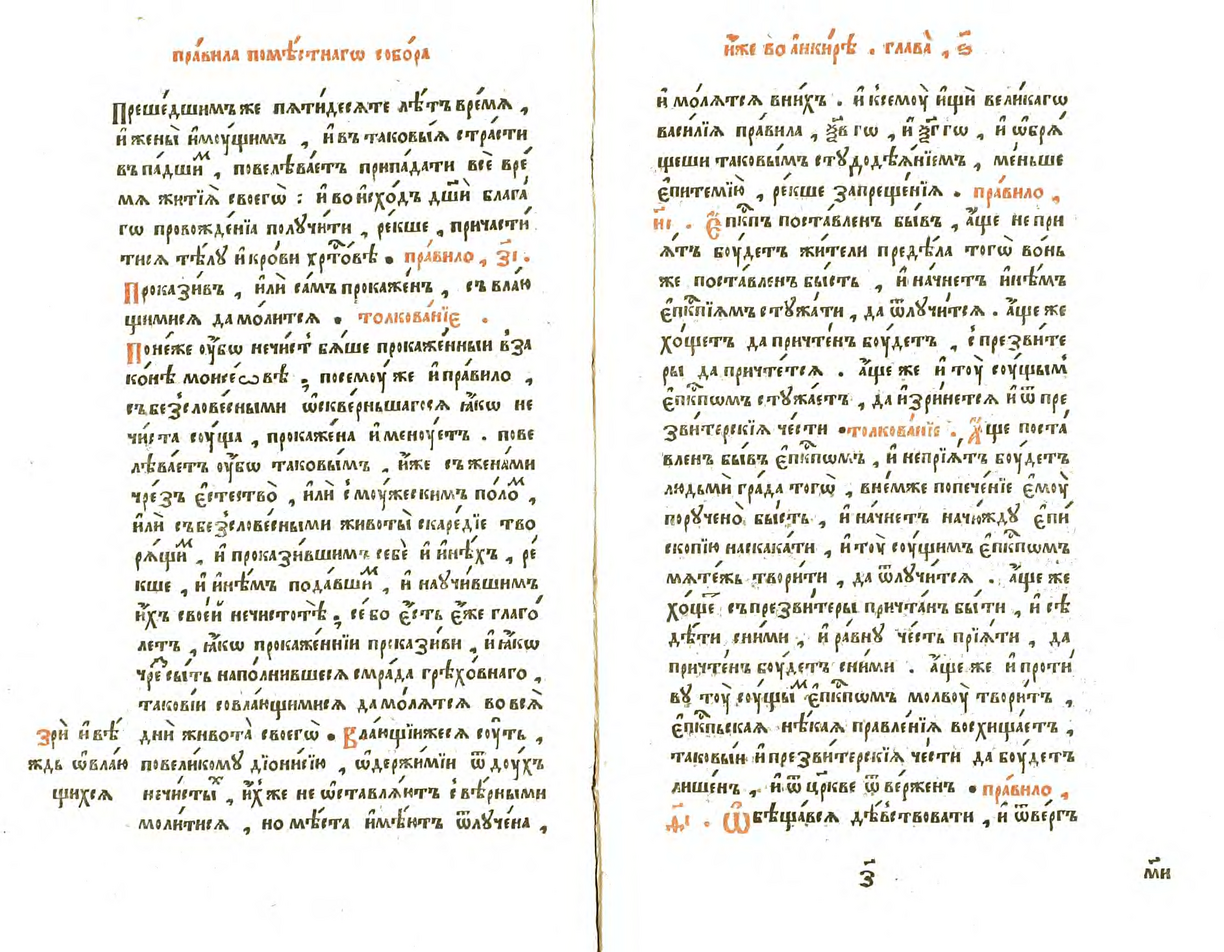 пра́вила помѣ́стнагѡ собо́ра
Преше́дшимъ же пѧтидесѧ́те лѣ́тъ вре́мѧ ,
и҆ жены̀ и҆мꙋ́щимъ , и҆ въ таковы́ѧ стра́сти
въпа́дшиⷨ , повелѣва́етъ припа́дати всѐ вре́
мѧ житїѧ̀ своегѡ̀ : и҆ во и҆схо́дъ дш҃и блага́
гѡ провожде́нїа получи́ти , ре́кше , причасти́
тисѧ тѣ́лу и҆ кро́ви хрⷭ҇то́вѣ . пра́вило , з҃і .
Прокази́въ , и҆лѝ са́мъ прокаже́нъ , съ влаю́
щимисѧ да мо́литсѧ . толкова́нїе .
Поне́же ᲂу҆́бѡ нечи́ст бѧ́ше прокаже́нныи в за
ко́нѣ моисе́ѡвѣ , посемꙋ́ же и҆ пра́вило ,
съ безслове́сными ѡ҆скве́рньшагосѧ ꙗ҆́кѡ не
чи́ста сꙋ́ща , прокаже́на и҆менꙋ́етъ . пове
лѣва́етъ ᲂу҆́бѡ таковы́мъ , и҆́же съ жена́ми
чре́зъ є҆стество̀ , и҆лѝ с мꙋ́жескимъ по́лоⷨ ,
и҆лѝ съ безслове́сными живо́ты скаре́дїе тво
рѧ́щиⷨ , и҆ прокази́вшимъ себѐ и҆ и҆нѣ́хъ , ре́
кше , и҆ и҆нѣ́мъ пода́вшиⷨ , и҆ научи́вшимъ
и҆́хъ свое́й нечистотѣ̀ , се́ бо є҆́сть є҆́же глаго́
летъ , ꙗ҆́кѡ прокаже́ннїи прокази́ви , и҆ ꙗ҆́кѡ
чреⷥ сы́ть напо́лнившесѧ смра́да грѣхо́внаго ,
такові́и со влаю́щимисѧ да мо́лѧтсѧ во всѧ̀
дни̑ живота̀ своегѡ̀ . Влаю́щїижесѧ сꙋ́ть ,
по вели́кому дїони́сїю , ѡ҆держи́мїи ѿ дꙋ́хъ
нечи́стыⷯ , и҆́хже не ѡ҆ставлѧ́ютъ с вѣ́рными
моли́тисѧ , но мѣ́ста и҆мѣ́ютъ ѿлуче́на ,
зрѝ и҆ вѣ́
ждь ѡ҆ влаю́
щихсѧ
и҆́же во а҆нки́рѣ . глава̀ , ѕ҃
и҆ мо́лѧтсѧ в ни́хъ . и҆ к семꙋ̀ и҆щѝ вели́кагѡ
васи́лїѧ пра́вила , ѯ҃в гѡ , и҆ ѯ҃г гѡ , и҆ ѡ҆брѧ́
щеши таковы́мъ студодѣѧ́нїемъ , ме́ньше
є҆питемі́ю , ре́кше запреще́нїѧ . пра́вило ,
и҃і . Є҆пⷭ҇кпъ поста́вленъ бы́въ , а҆́ще не при
ѧ́тъ бꙋ́детъ жи́тели предѣ́ла тогѡ̀ во́нь
же поста́вленъ бы́сть , и҆ начне́тъ и҆нѣ́мъ
є҆пⷭ҇кпїѧмъ стужа́ти , да ѿлучи́тсѧ . а҆́ще же
хо́щетъ да причте́нъ бꙋ́детъ , с презвите
ры да причте́тсѧ . а҆́ще же и҆ тꙋ̀ сꙋ́щым
є҆пⷭ҇кпѡмъ стужа́етъ , да и҆зри́нетсѧ и҆ ѿ пре
звите́рскїѧ че́сти . толкова́нїе . А҆́ще поста́
вленъ бы́въ є҆пⷭ҇кпомъ , и҆ непрїѧ́тъ бꙋ́детъ
людьмѝ гра́да тогѡ̀ , в не́мже попече́нїе є҆мꙋ̀
порꙋчено̀ бы́сть , и҆ начне́тъ на чю́ждꙋ є҆пи
скопі́ю наскака́ти , и҆ тꙋ̀ сꙋ́щимъ є҆пⷭ҇кпѡмъ
мѧте́жь твори́ти , да ѿлучи́тсѧ . а҆́ще же
хо́щеⷮ съ презви́теры причта́нъ бы́ти , и҆ сѣ
дѣ́ти с ни́ми , и҆ ра́внꙋ че́сть прїѧ́ти , да
причте́нъ бꙋ́детъ с ни́ми . а҆́ще же и҆ проти́
ву тꙋ̀ сꙋ́щыⷨ є҆пⷭ҇кпѡмъ молвꙋ̀ твори́тъ ,
є҆пⷭ҇кпьскаѧ нѣ́каѧ правле́нїѧ восхища́етъ ,
таковы́и и҆ презвите́рскїѧ че́сти да бꙋ́детъ
лише́нъ , и҆ ѿ цр҃кве ѿве́рженъ . пра́вило ,
ѳ҃і . Ѡ҆бѣща́всѧ дѣ́вствовати , и҆ ѿве́ргъ
з҃
м҃и